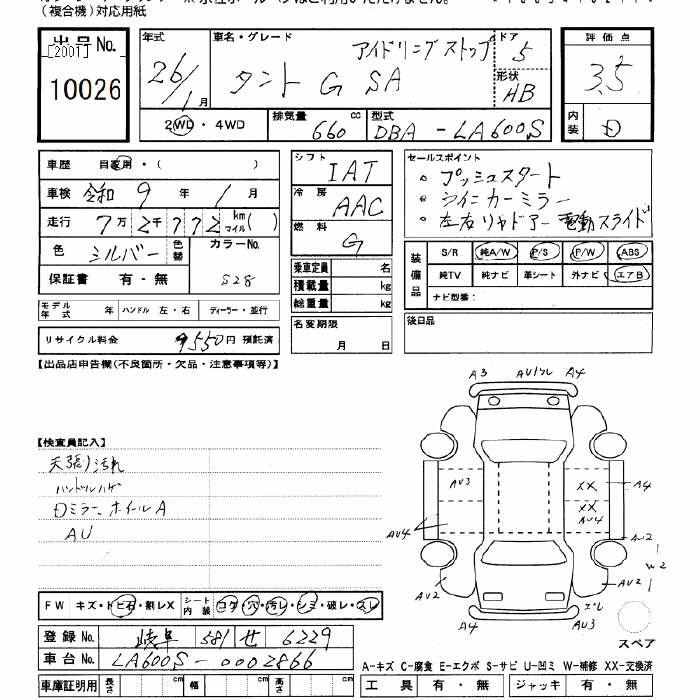 (複合機)対応用紙
出品No.
[2001]
10026
年式
26/1月
車名・グレード
アイドリングストップ
タント G SA
ドア
5
形状
HB
評価点
3.5
内装
D
2WD・4WD
排気量 660 cc
型式 DBA-LA600S
車歴 自家用・( )
車検 令和 9 年 1 月
走行 7万2千772 km マイル( )
色 シルバー 色替
カラーNo. S28
保証書 有・無
モデル年式 年 ハンドル 左・右 ディーラー・並行
リサイクル料金 9550円 預託済
シフト IAT
冷房 AAC
燃料 G
乗車定員 名
積載量 kg
総重量 kg
名変期限
月 日
セールスポイント
・プッシュスタート
・ウィンカーミラー
・左右リヤドアー電動スライド
装備品
S/R 純A/W P/S P/W ABS
純TV 純ナビ 革シート 外ナビ エアB
ナビ型番:
後日品
【出品店申告欄(不良箇所・欠品・注意事項等)】
【検査員記入】
天張り汚れ
ハンドルハゲ
Dミラー、ホイールA
AU
A3 AU/ワレ A4
AU3 XX A4
XX
AU4 AU4
AU2
W2
AU2 AU2
A4 AU3
スペア
FW キズ・トビ石・割レX
シート内装 コゲ・穴・汚レ・シミ・破レ・スレ
登録No. 岐阜 581 せ 6229
車台No. LA600S-0002866
A-キズ C-腐食 E-エクボ S-サビ U-凹ミ W-補修 XX-交換済
車庫証明用 長さ cm 幅 cm 高さ cm
工具 有・無 ジャッキ 有・無